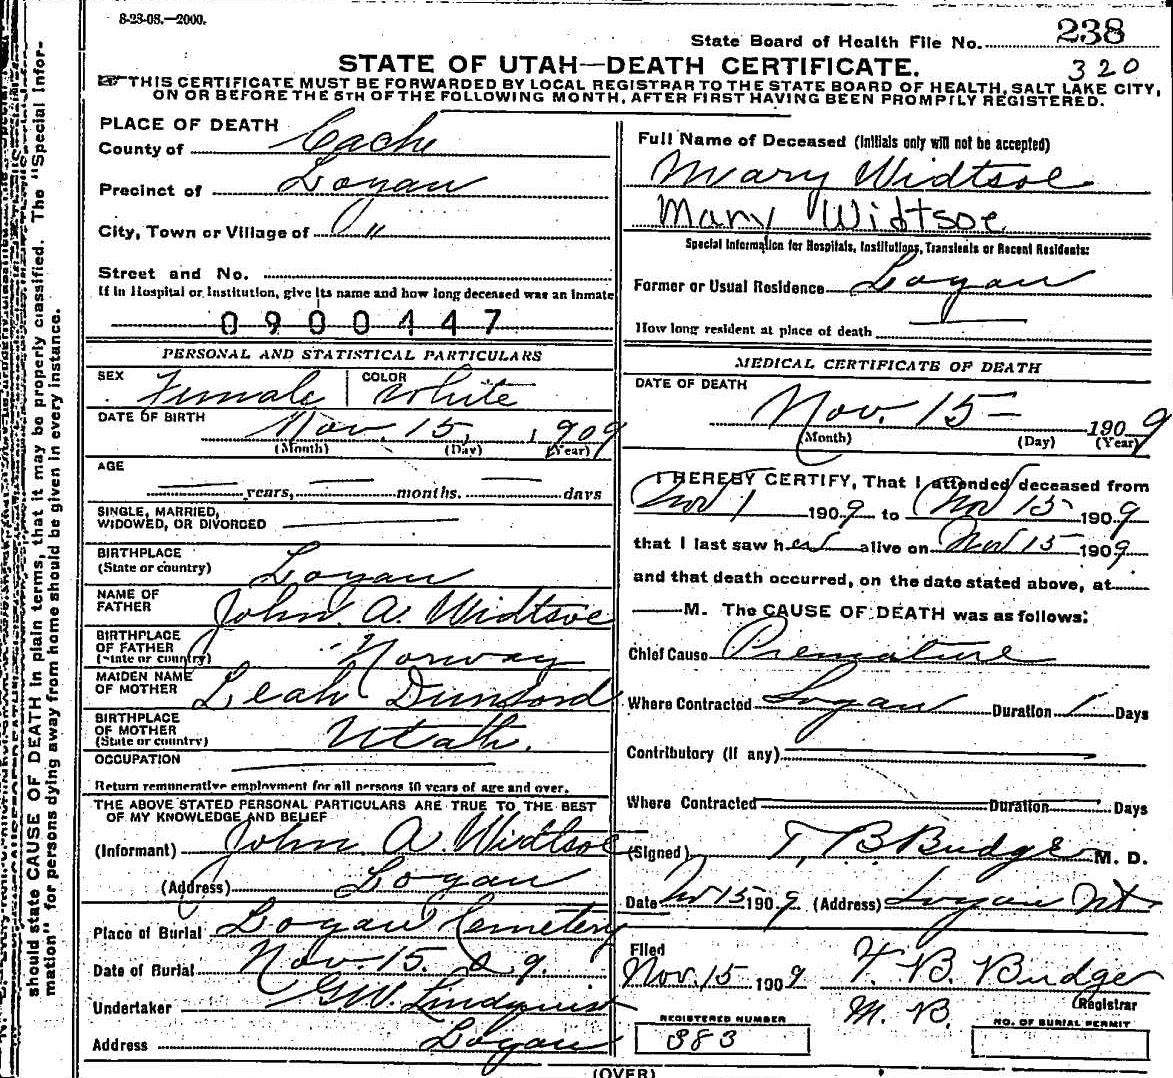 8-23-08.—2000.
State Board of Health File No. 238
STATE OF UTAH—DEATH CERTIFICATE. 320
THIS CERTIFICATE MUST BE FORWARDED BY LOCAL REGISTRAR TO THE STATE BOARD OF HEALTH, SALT LAKE CITY,
ON OR BEFORE THE 5TH OF THE FOLLOWING MONTH, AFTER FIRST HAVING BEEN PROMPILY REGISTERED.
PLACE OF DEATH
County of Cache
Precinct of Logan
City, Town or Village of "
Street and No.
If in Hospital or Institution, give its name and how long deceased was an inmate
0900447
PERSONAL AND STATISTICAL PARTICULARS
SEX Female COLOR White
DATE OF BIRTH Nov. 15, 1909
(Month) (Day) (Year)
AGE
years, months. days
SINGLE, MARRIED,
WIDOWED, OR DIVORCED
BIRTHPLACE
(State or country) Logan
NAME OF
FATHER John A. Widtsoe
BIRTHPLACE
OF FATHER
(State or country) Norway
MAIDEN NAME
OF MOTHER Leah Dunford
BIRTHPLACE
OF MOTHER
(State or country) Utah.
OCCUPATION
Return remunerative employment for all persons 10 years of age and over.
THE ABOVE STATED PERSONAL PARTICULARS ARE TRUE TO THE BEST
OF MY KNOWLEDGE AND BELIEF
(Informant) John A. Widtsoe
(Address) Logan
Place of Burial Logan Cemetery
Date of Burial Nov. 15. 09.
Undertaker G.W. Lindquist
Address Logan
Full Name of Deceased (Initials only will not be accepted)
Mary Widtsoe
Mary Widtsoe
Special Information for Hospitals, Institutions, Transients or Recent Residents:
Former or Usual Residence Logan
How long resident at place of death
MEDICAL CERTIFICATE OF DEATH
DATE OF DEATH
Nov. 15— 1909
(Month) (Day) (Year)
I HEREBY CERTIFY, That I attended deceased from
Nov 1 1909 to Nov 15 1909
that I last saw her alive on Nov 15 1909
and that death occurred, on the date stated above, at
M. The CAUSE OF DEATH was as follows:
Chief Cause Premature
Where Contracted Logan Duration 1 Days
Contributory (If any)
Where Contracted Duration Days
(Signed) T. B. Budge M. D.
Date Nov 15 1909 (Address) Logan Ut
Filed
Nov. 15 1909 T. B. Budge
Registrar
M. B.
REGISTERED NUMBER
383
NO. OF BURIAL PERMIT
(OVER)
should state CAUSE OF DEATH in plain terms, that it may be properly classified. The "Special Infor-
mation" for persons dying away from home should be given in every instance.